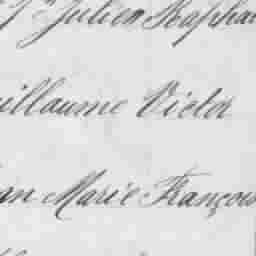 Julien Rapha
illaume Victor
an Marie François